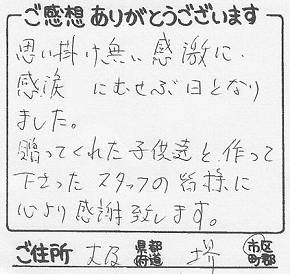 ご感想ありがとうございます
思い掛け無い感激に、
感涙 にむせぶ日となり
ました。
贈ってくれた子供達と、作って
下さった スタッフの皆様に
心より感謝致します。
ご住所 大阪 都道府県 堺 市区町郡